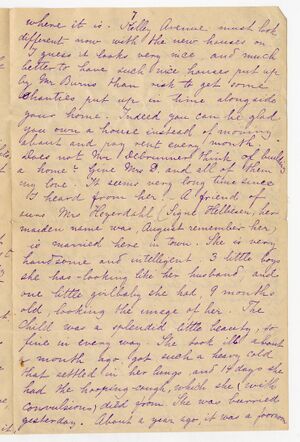 7
where it is. Kelley Avenue must look
different now with the new houses on
I guess it looks very nice and much
better to have such nice houses put up
by Mr Burns than risk to get some
shanties put up in time alongside
your home. Indeed you can be glad
you own a house instead of moving
about and pay rent every month
Does not Mr think of build
a home? Give Mrs D and all of them
my love. It seems very long time since
I heard from her. A friend of
ours Mrs Heyerdahl (Signe Heltesen, her
maiden name was, August remember her,)
is married here in town. She is very
handsome and intellegent. 3 little boys
she has - looking like her husband, and
one little girl baby she had, 9 months
old, looking the image of her. The
Child was a splendid little beauty, so
fine in every way. She took ill about
a month ago, got such a heavy cold
that settled in her lungs and 14 days she
had the hooping-cough, which she (with
convulsions) died from. She was burried
yesterday. About a year ago, it was a